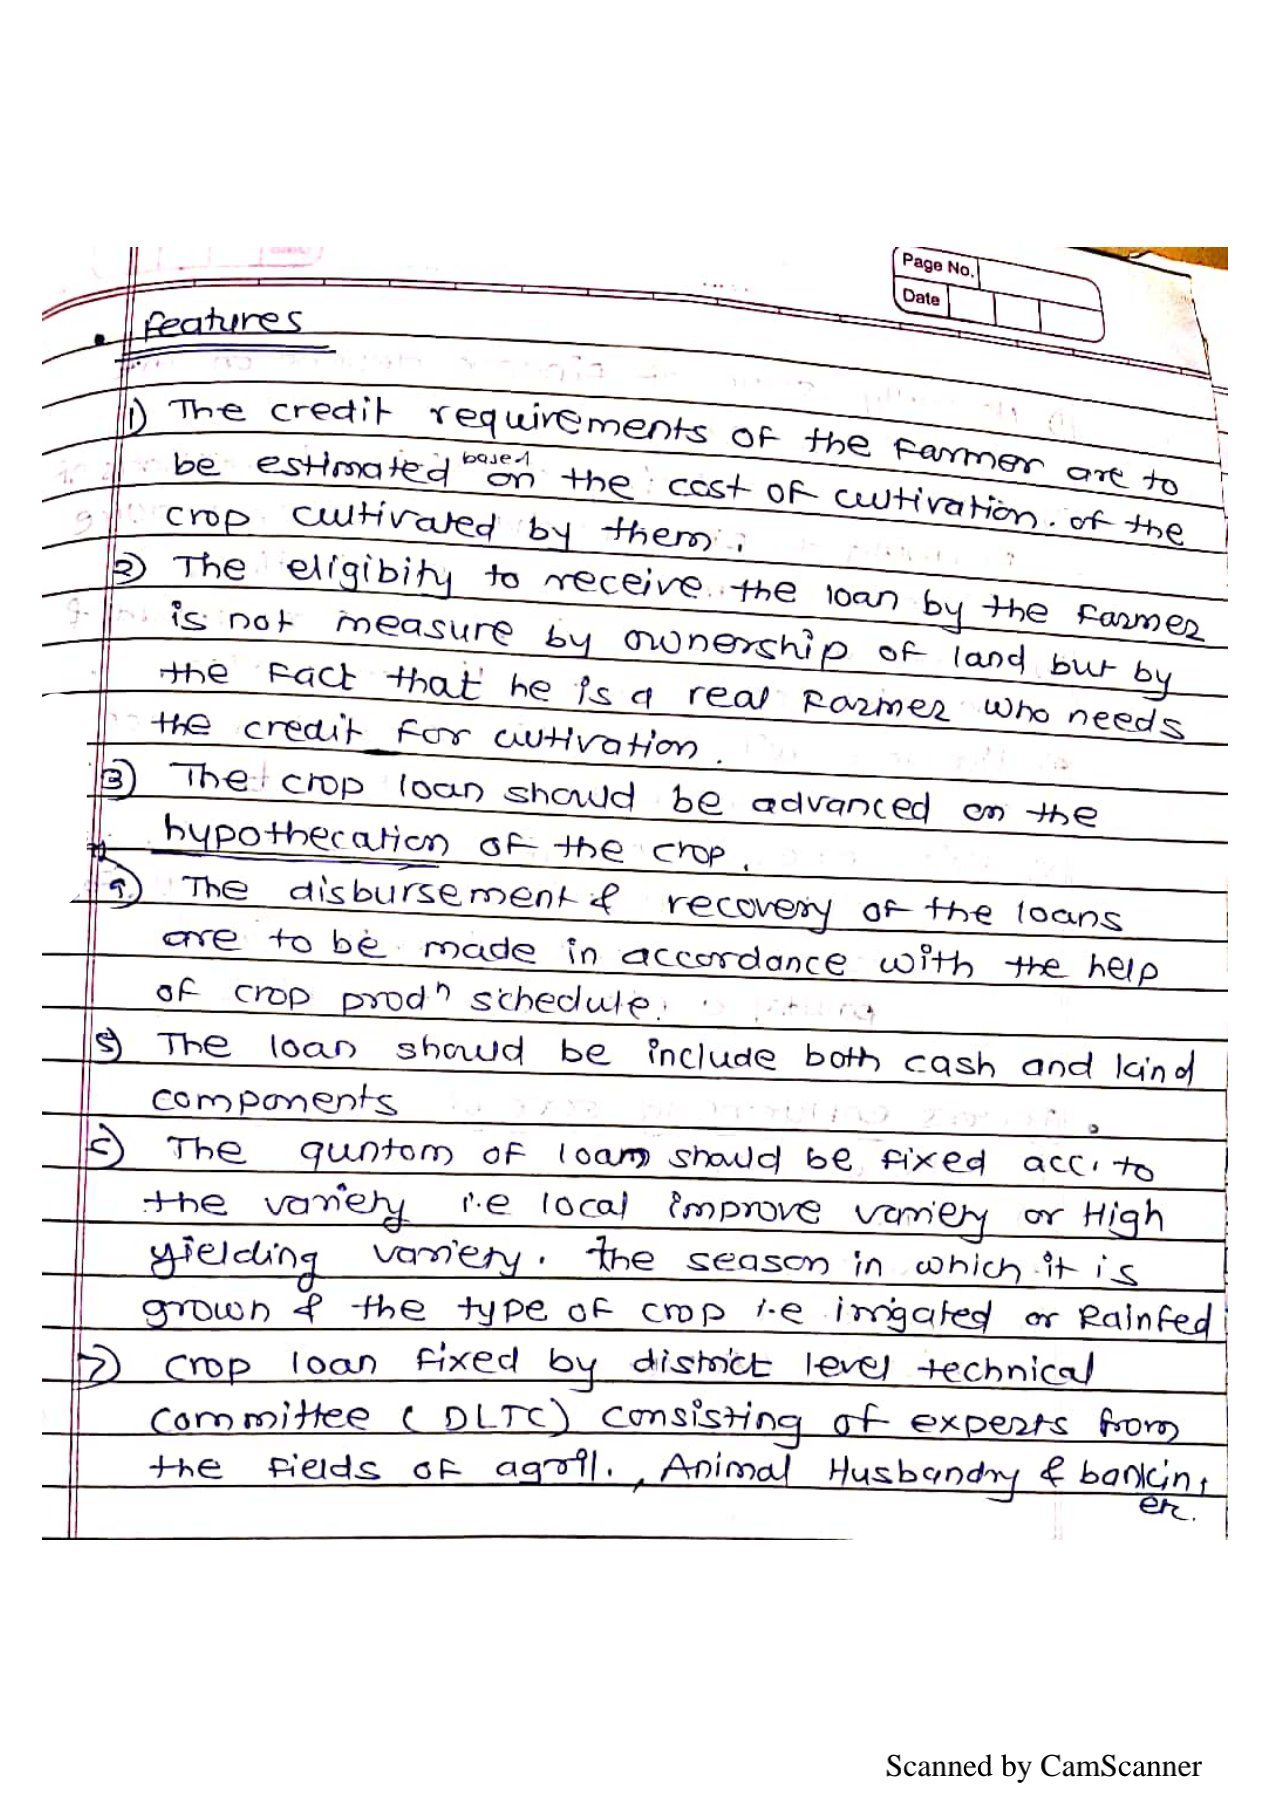 Page No.
Date
• Features
1) The credit requirements of the farmer are to
be estimated based on the cost of cultivation. of the
crop cultivated by them.
2) The eligibity to receive the loan by the farmer
is not measure by ownership of land but by
the fact that he is a real farmer who needs
the credit for cultivation.
3) The crop loan should be advanced on the
hypothecation of the crop.
4) The disbursement & recovery of the loans
are to be made in accordance with the help
of crop prodn schedule.
5) The loan should be include both cash and kind
components
6) The quntom of loan should be fixed acc. to
the variety i.e local improve variety or High
yielding variety. The season in which it is
grown & the type of crop i.e irrigated or Rainfed
7) crop loan fixed by district level technical
committee (DLTC) consisting of experts from
the fields of agril., Animal Husbandry & bankin,
etc.
Scanned by CamScanner